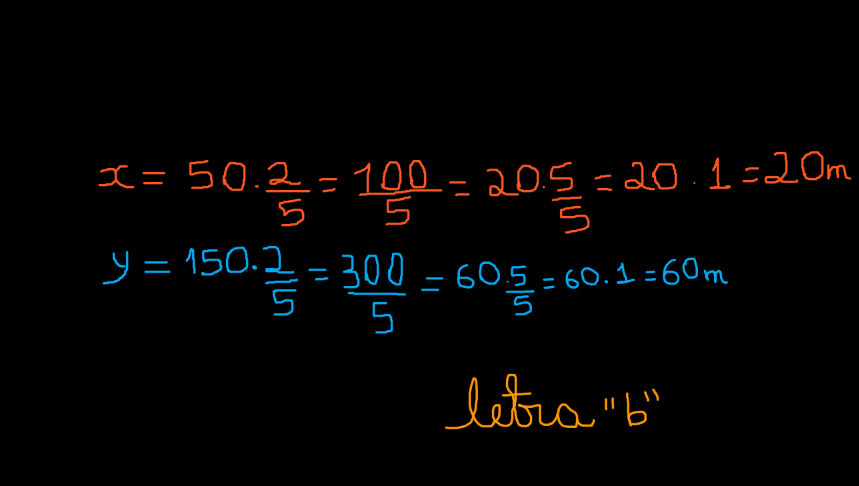 x = 50.2/5 = 100/5 = 20.5/5 = 20.1 = 20m
y = 150.2/5 = 300/5 = 60.5/5 = 60.1 = 60m
letra "b"